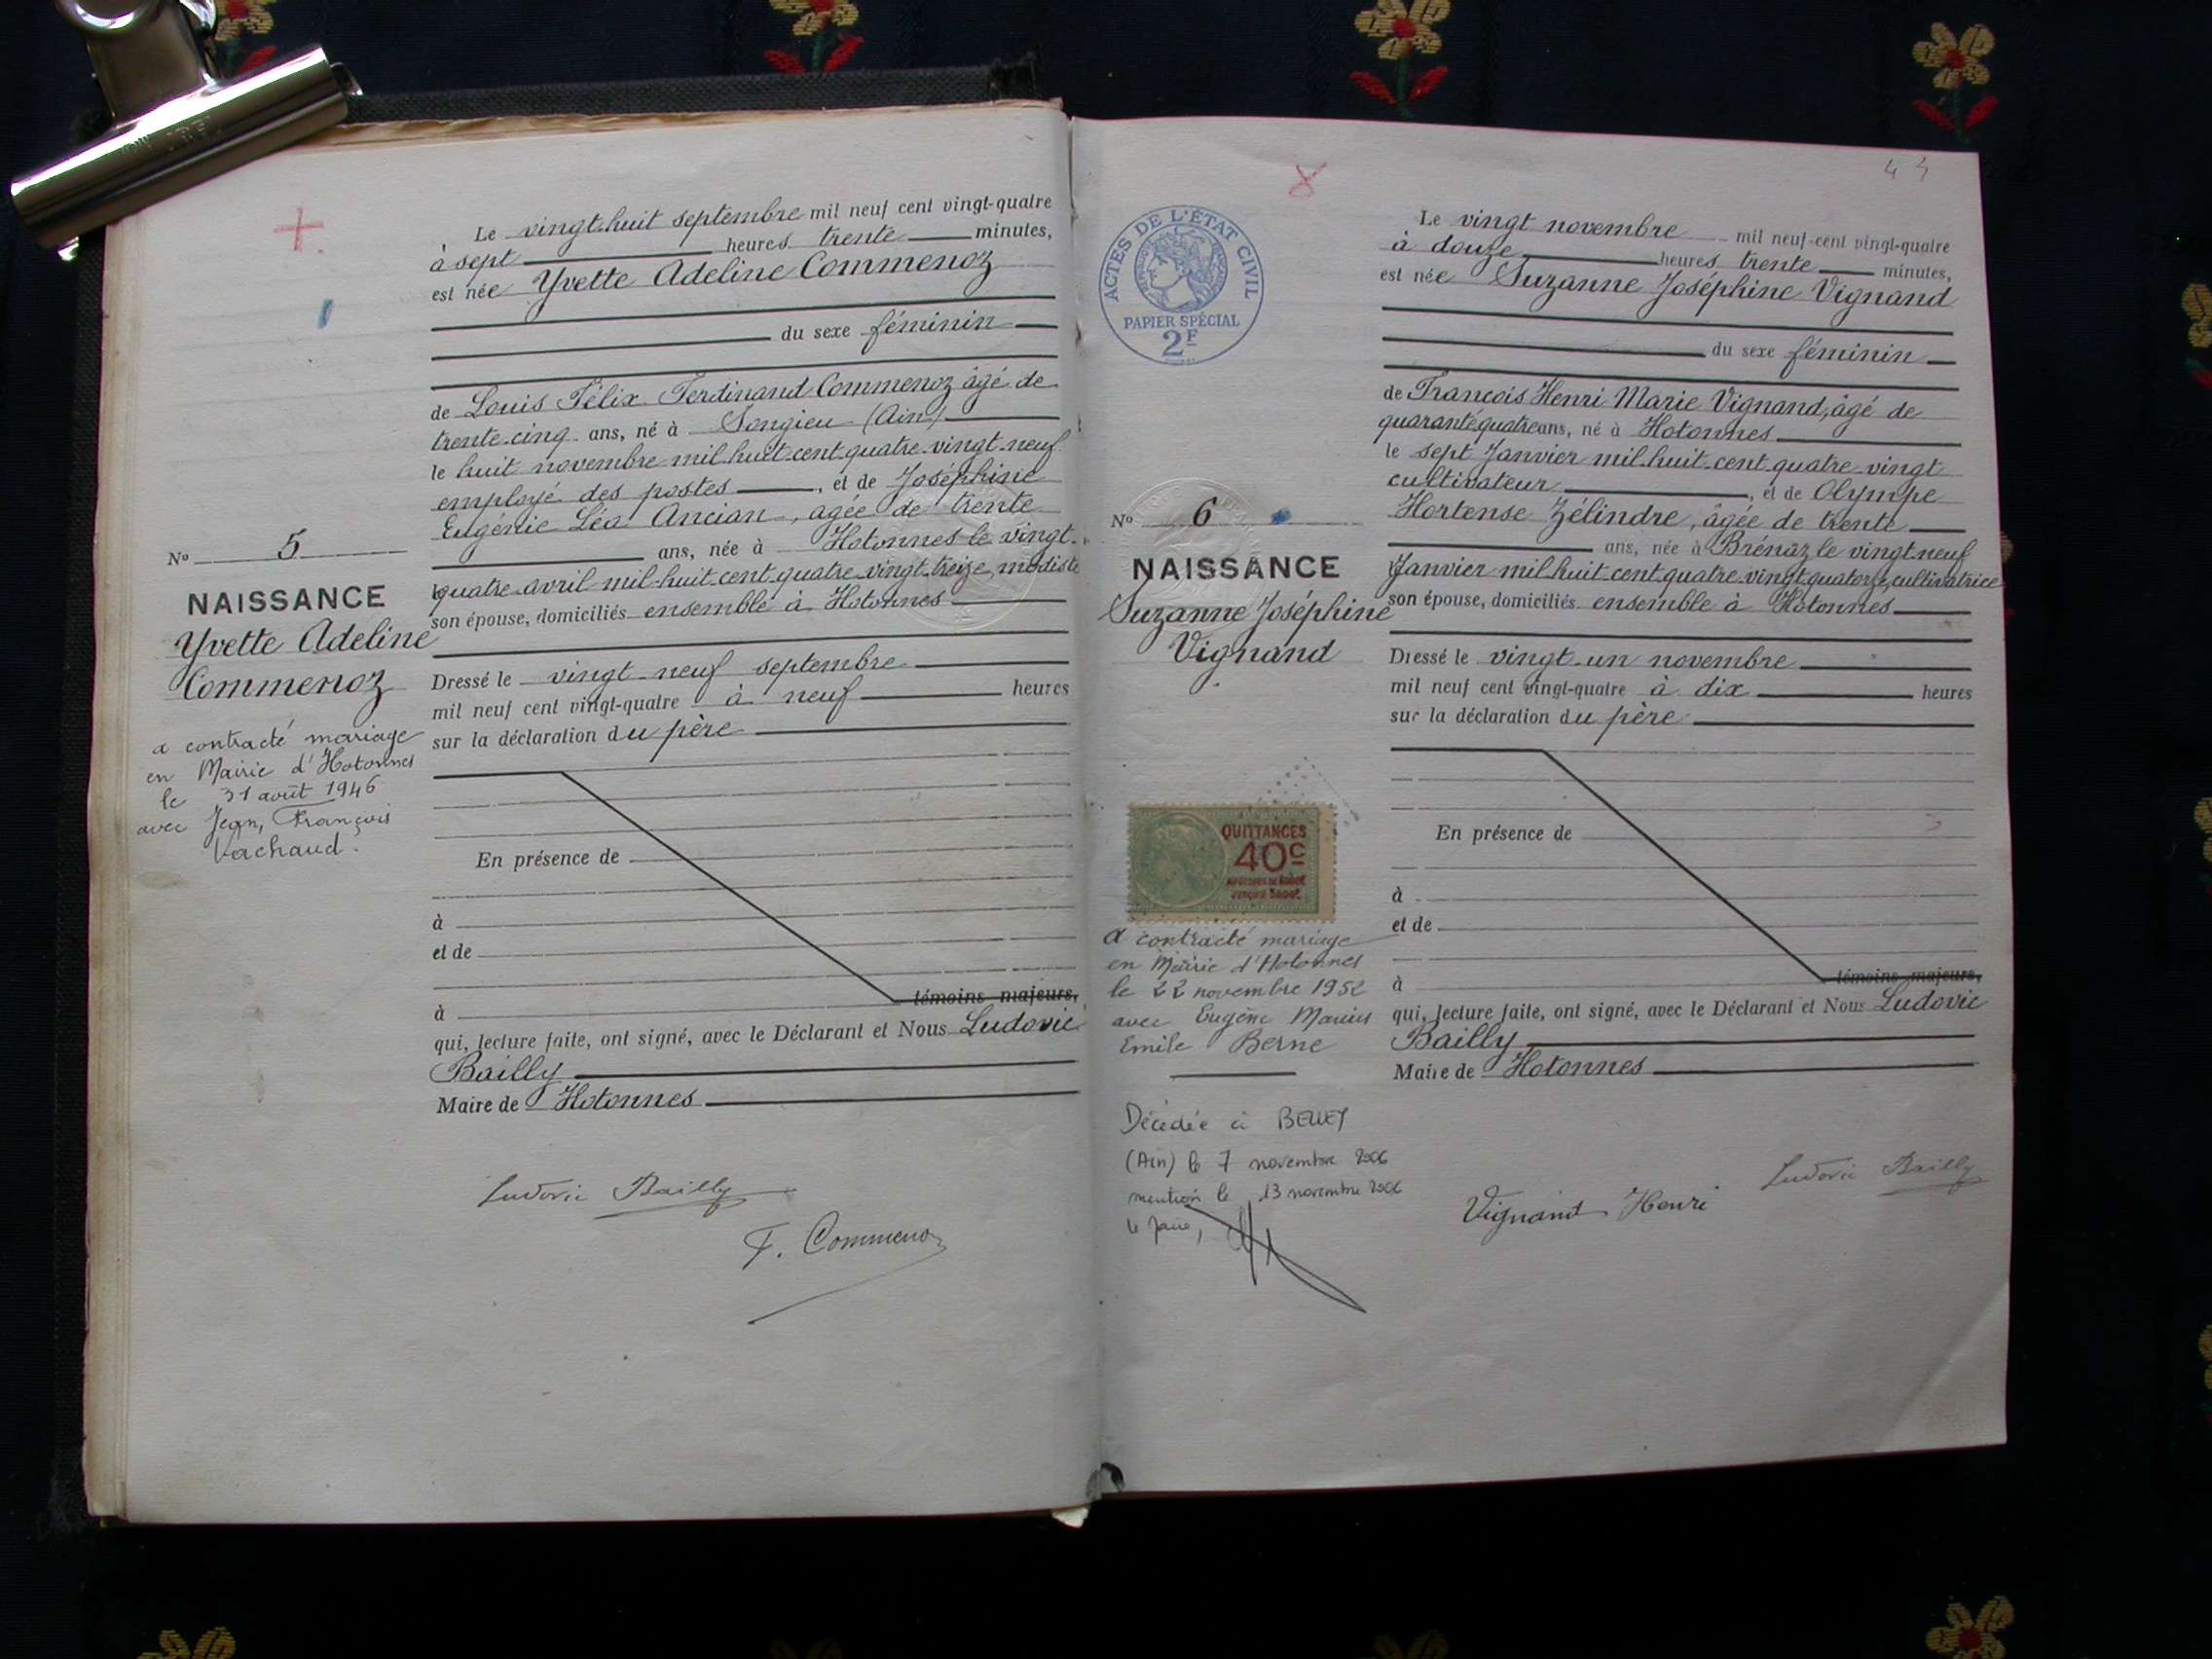 Le vingt-huit septembre mil neuf cent vingt-quatre
à sept heures trente minutes,
est née Yvette Adeline Commenoz
du sexe féminin
de Louis Félix Ferdinand Commenoz âgé de
trente-cinq ans, né à Songieu (Ain)
le huit novembre mil huit cent quatre-vingt-neuf
employé des postes, et de Joséphine
Eugénie Léa Ancian, âgée de trente
ans, née à Hotonnes le vingt-
quatre avril mil huit cent quatre-vingt-treize, modiste
son épouse, domiciliés ensemble à Hotonnes
Dressé le vingt-neuf septembre
mil neuf cent vingt-quatre à neuf heures
sur la déclaration du père
En présence de
à
et de
à témoins majeurs,
qui, lecture faite, ont signé, avec le Déclarant et Nous Ludovic
Bailly
Maire de Hotonnes
Ludovic Bailly
F. Commenoz
No 5
NAISSANCE
Yvette Adeline
Commenoz
a contracté mariage
en Mairie d'Hotonnes
le 31 août 1946
avec Jean, François
Vachaud.
ACTES DE L'ÉTAT CIVIL
PAPIER SPÉCIAL
2F
No 6
NAISSANCE
Suzanne Joséphine
Vignand
QUITTANCES
40c
A contracté mariage
en Mairie d'Hotonnes
le 22 novembre 1952
avec Eugène Marius
Emile Berne
Décédée à BELLEY
(Ain) le 7 novembre 2006
mention le 13 novembre 2006
le Maire,
Le vingt novembre mil neuf cent vingt-quatre
à douze heures trente minutes,
est née Suzanne Joséphine Vignand
du sexe féminin
de François Henri Marie Vignand, âgé de
quarante quatre ans, né à Hotonnes
le sept Janvier mil huit cent quatre-vingt
cultivateur, et de Olympe
Hortense Zélindre, âgée de trente
ans, née à Brénaz le vingt-neuf
Janvier mil huit cent quatre-vingt quatorze, cultivatrice
son épouse, domiciliés ensemble à Hotonnes
Dressé le vingt-un novembre
mil neuf cent vingt-quatre à dix heures
sur la déclaration du père
En présence de
à
et de
à témoins majeurs,
qui, lecture faite, ont signé, avec le Déclarant et Nous Ludovic
Bailly
Maire de Hotonnes
Vignand Henri
Ludovic Bailly